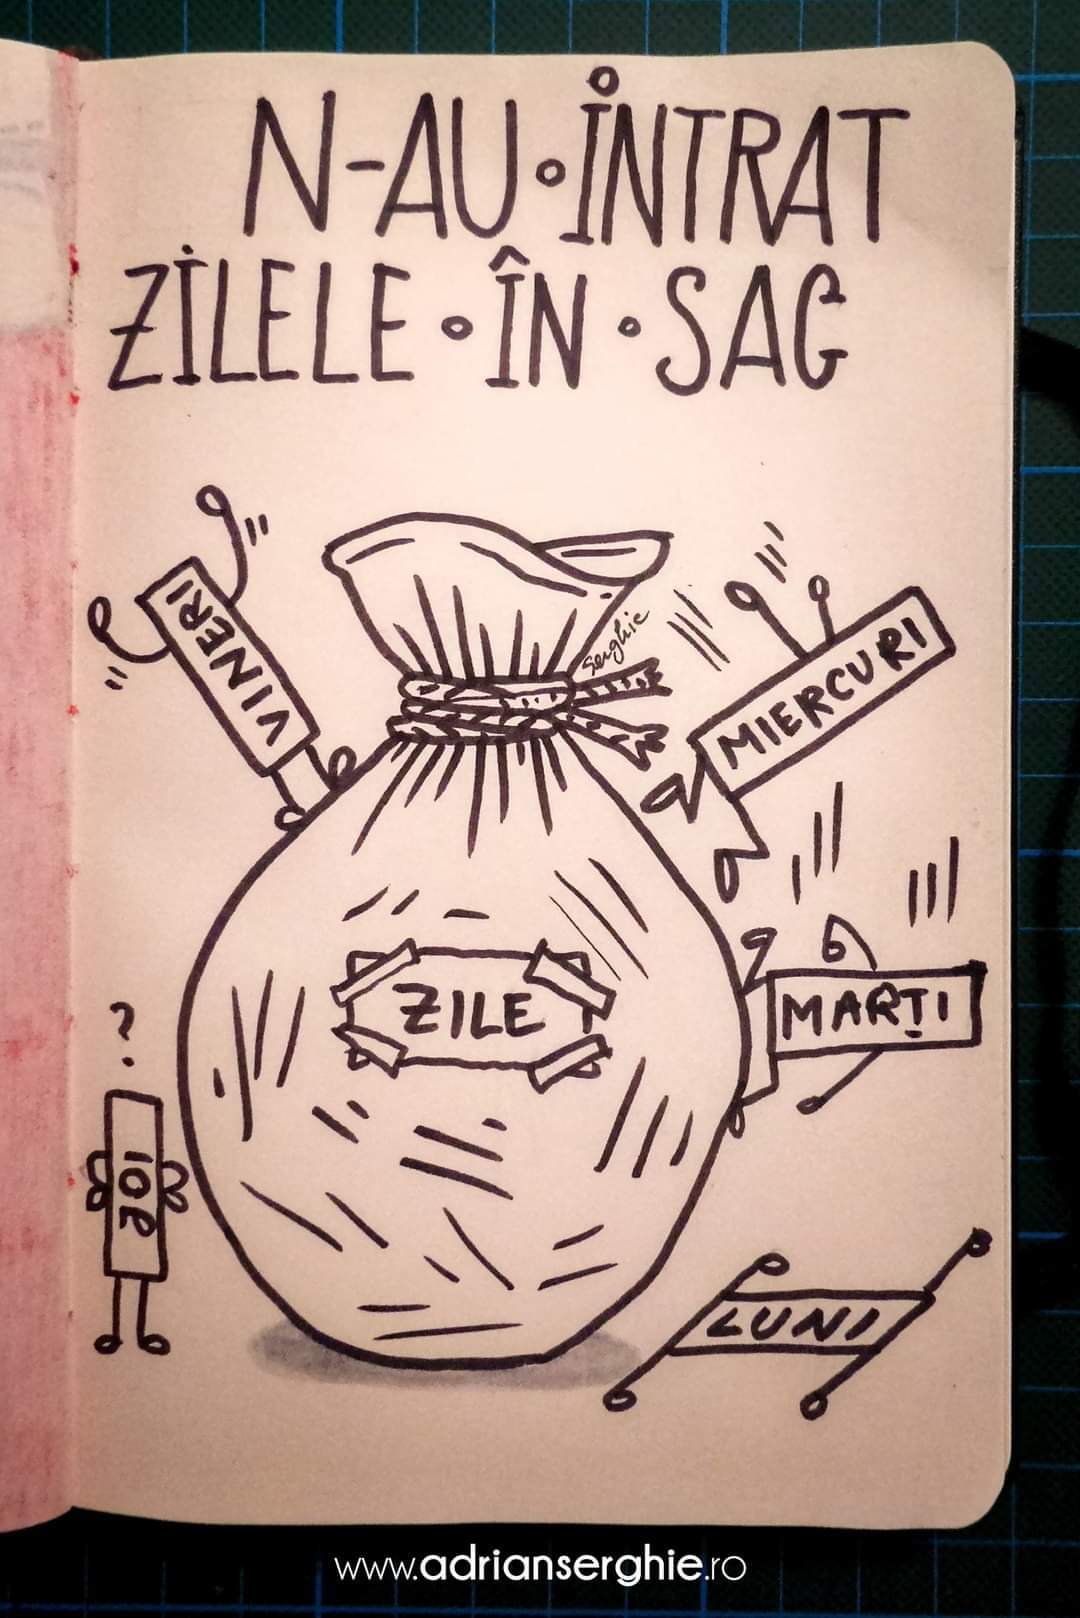 N-AU • INTRAT
ZILELE • ÎN • SAC
VINERI
Serghie
MIERCURI
ZILE
MARȚI
?
JOI
LUNI
www.adrianserghie.ro